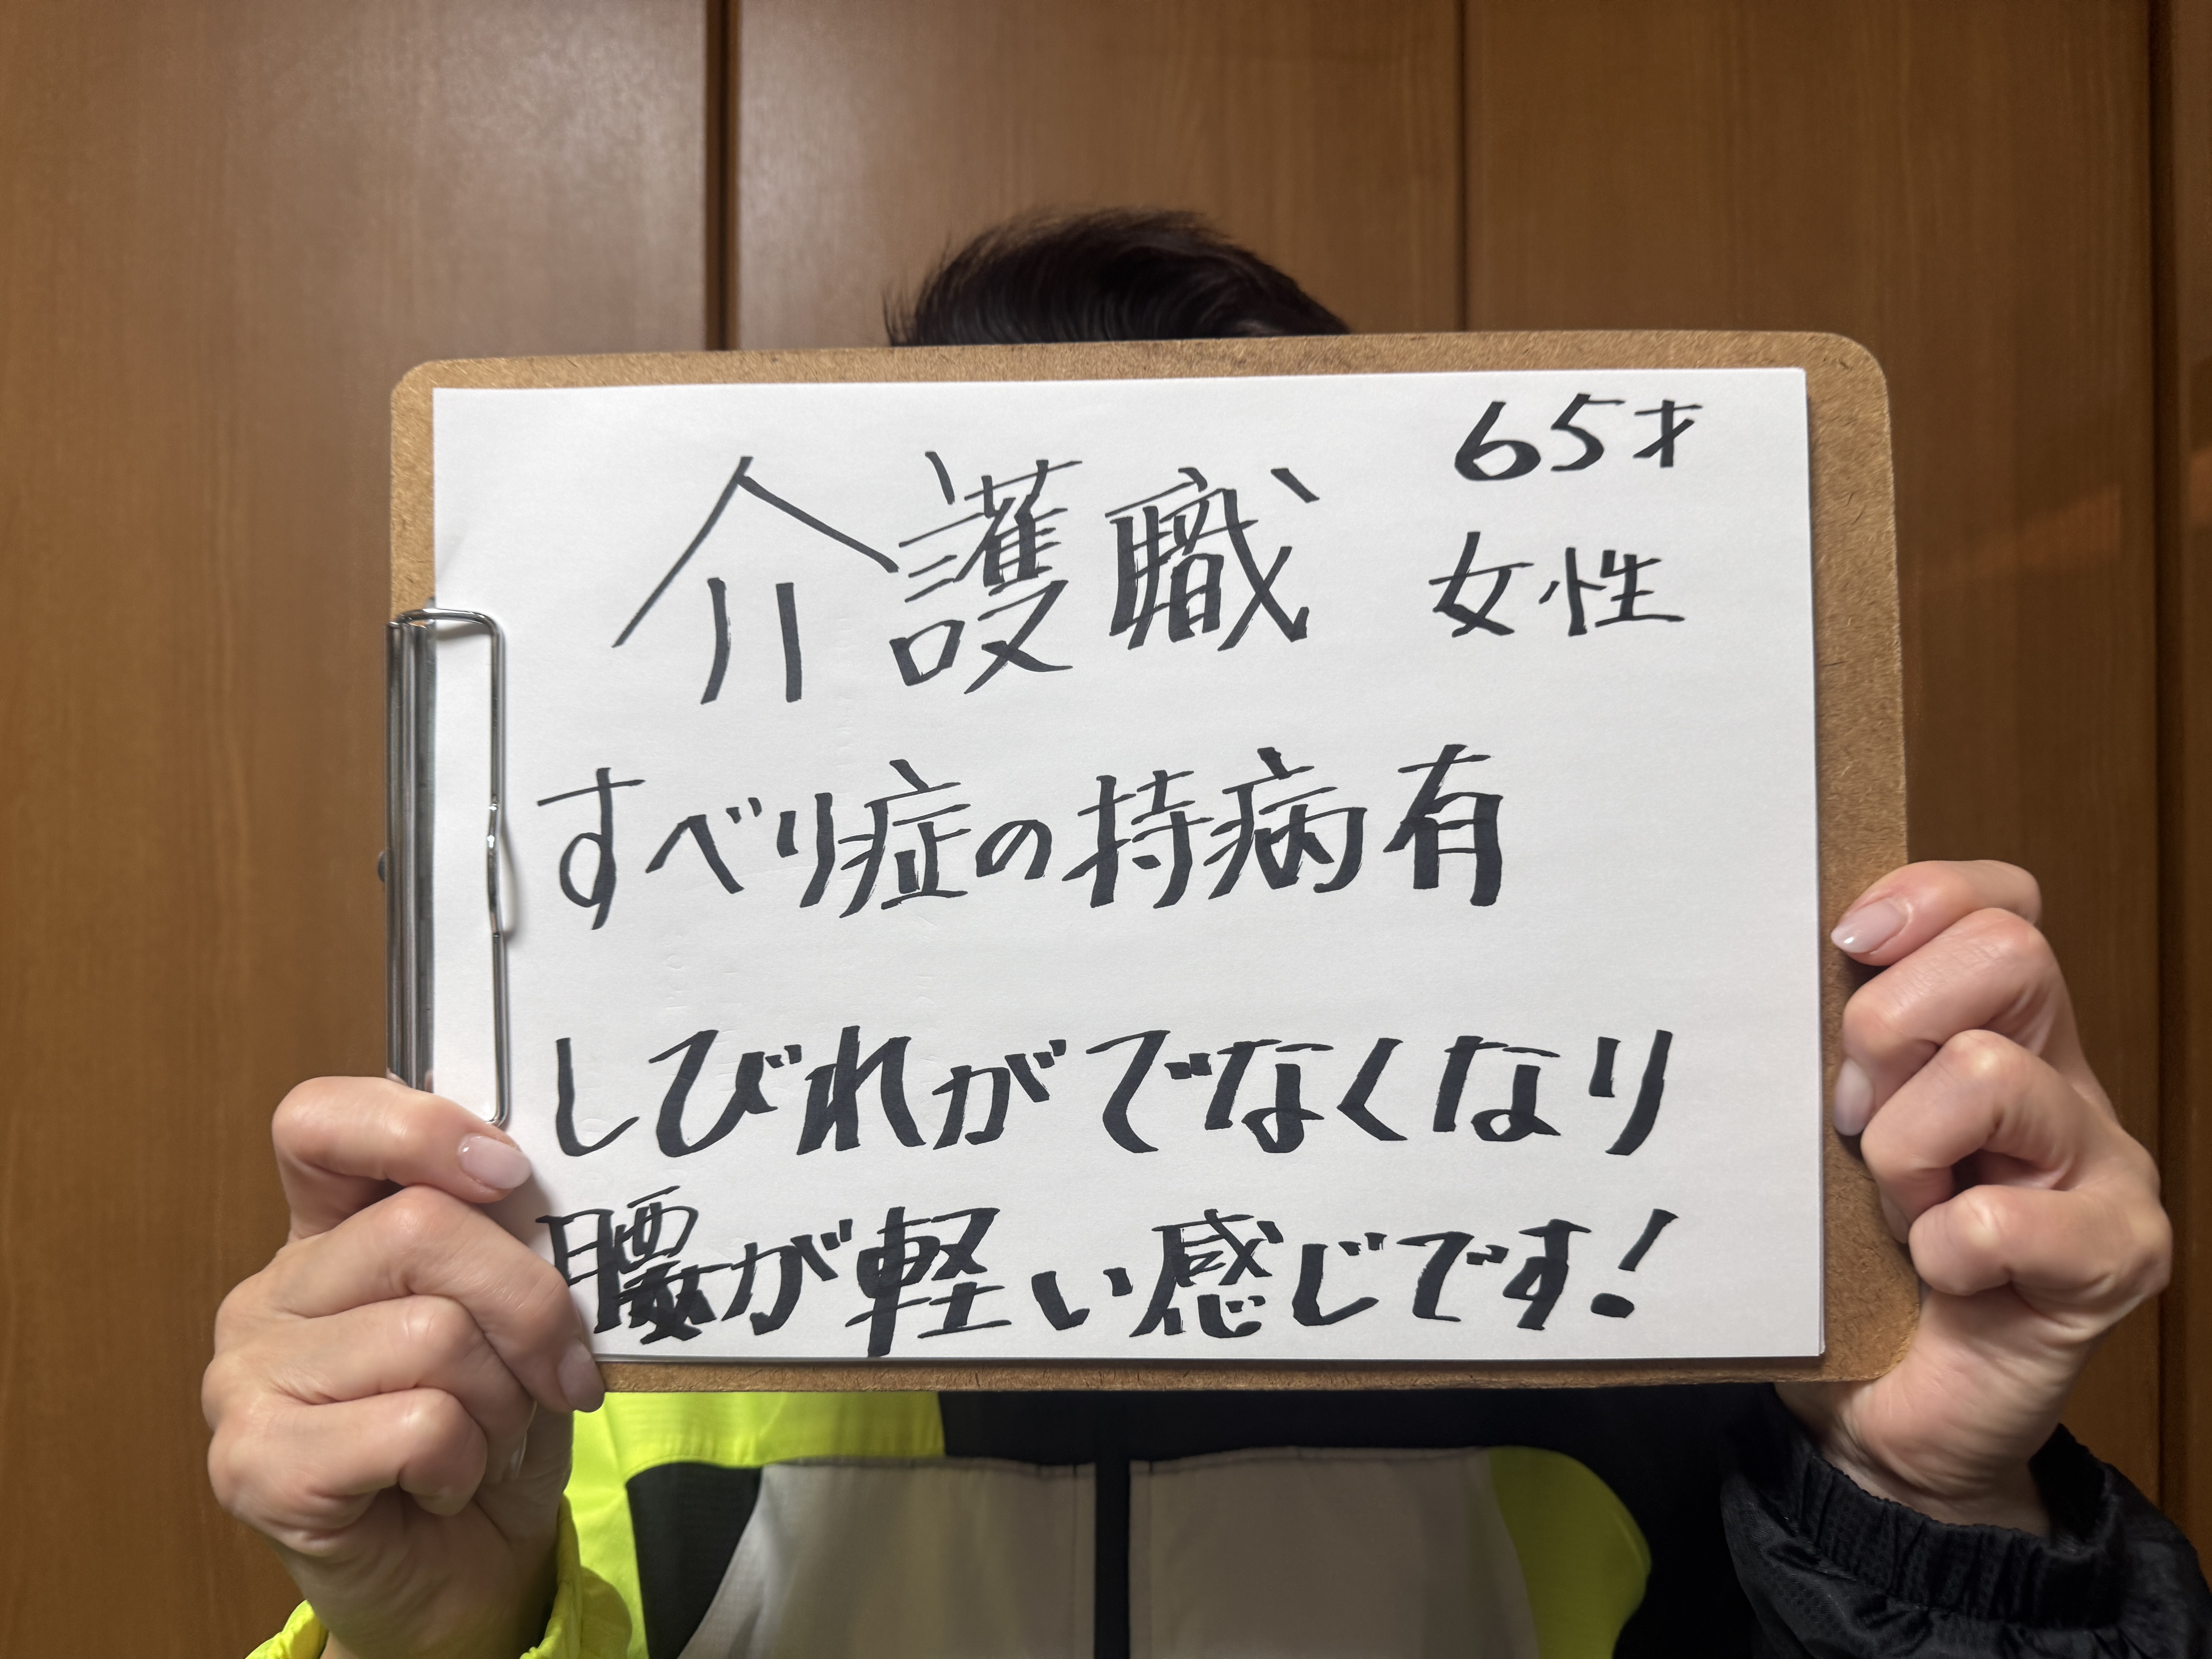 介護職
65才
女性
すべり症の持病有
しびれがでなくなり
腰が軽い感じです!